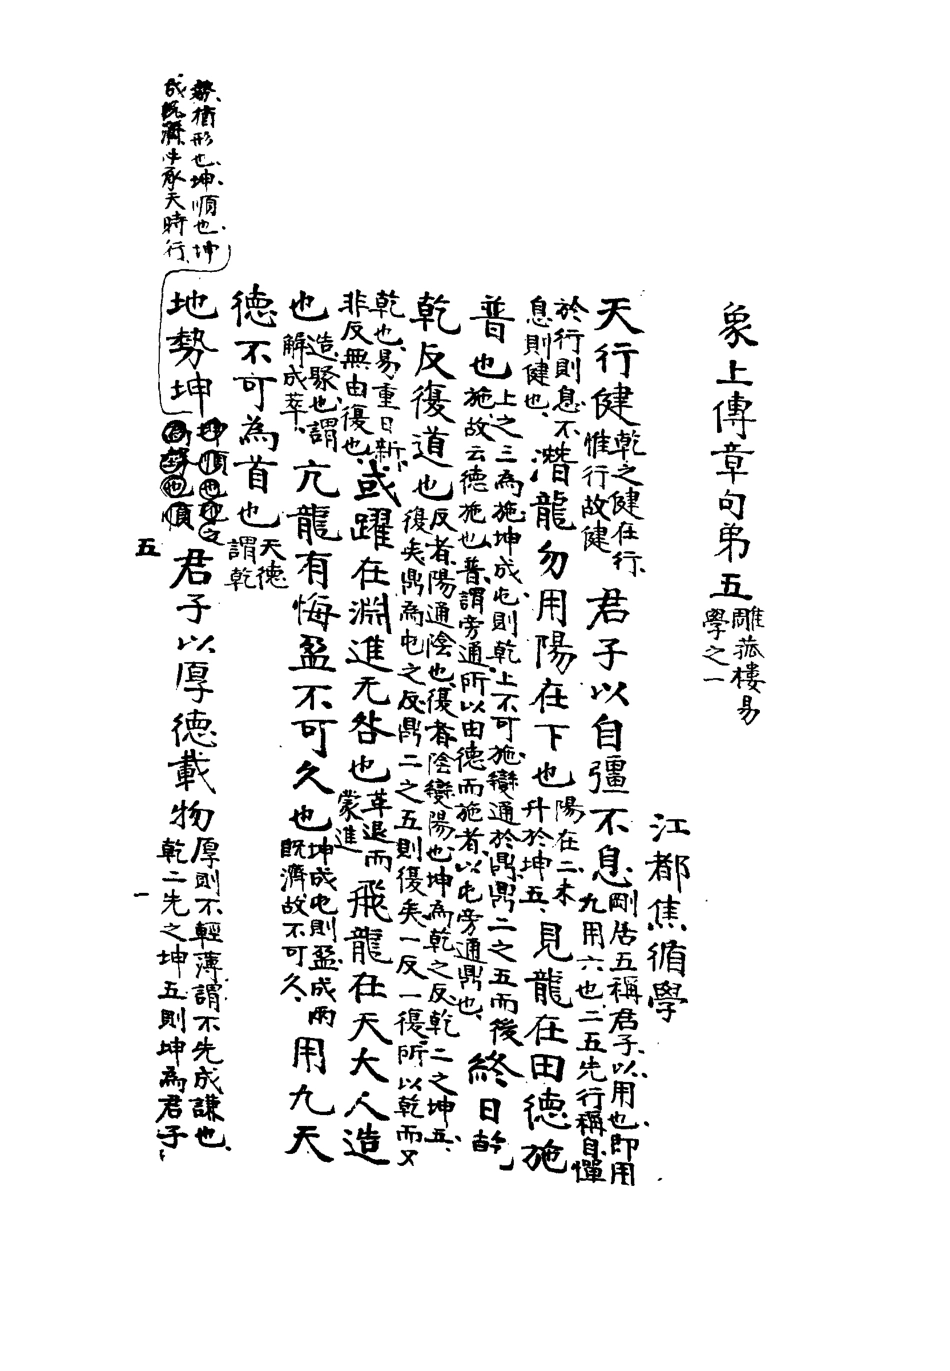 象上傳章句弟五雕菰樓易學之一
江都焦循學
天行健乾之健在行惟行故健君子以自彊不息剛居五稱君子以用也即用九用六也二五先行稱自憚
於行則息不息則健也潛龍勿用陽在下也陽在二未升於坤五見龍在田德施
普也上之三為施坤成屯則乾上不可施變通於鼎鼎二之五而後施故云德施也普謂旁通所以由德而施者以屯旁通鼎也終日乾
乾反復道也反者陽通陰也復者陰變陽也坤為乾之反乾二之坤五復矣鼎為屯之反鼎二之五則復矣一反一復所以乾而又
乾也易重日新非反無由復也或躍在淵進无咎也革退而蒙進飛龍在天大人造
也造聚也謂解成萃亢龍有悔盈不可久也坤成屯則盈成兩既濟故不可久用九天
德不可為首也天德謂乾
勢猶形也坤順也坤
成既濟承天時行
地勢坤君子以厚德載物厚則不輕薄謂不先成謙也乾二先之坤五則坤為君子
五
一